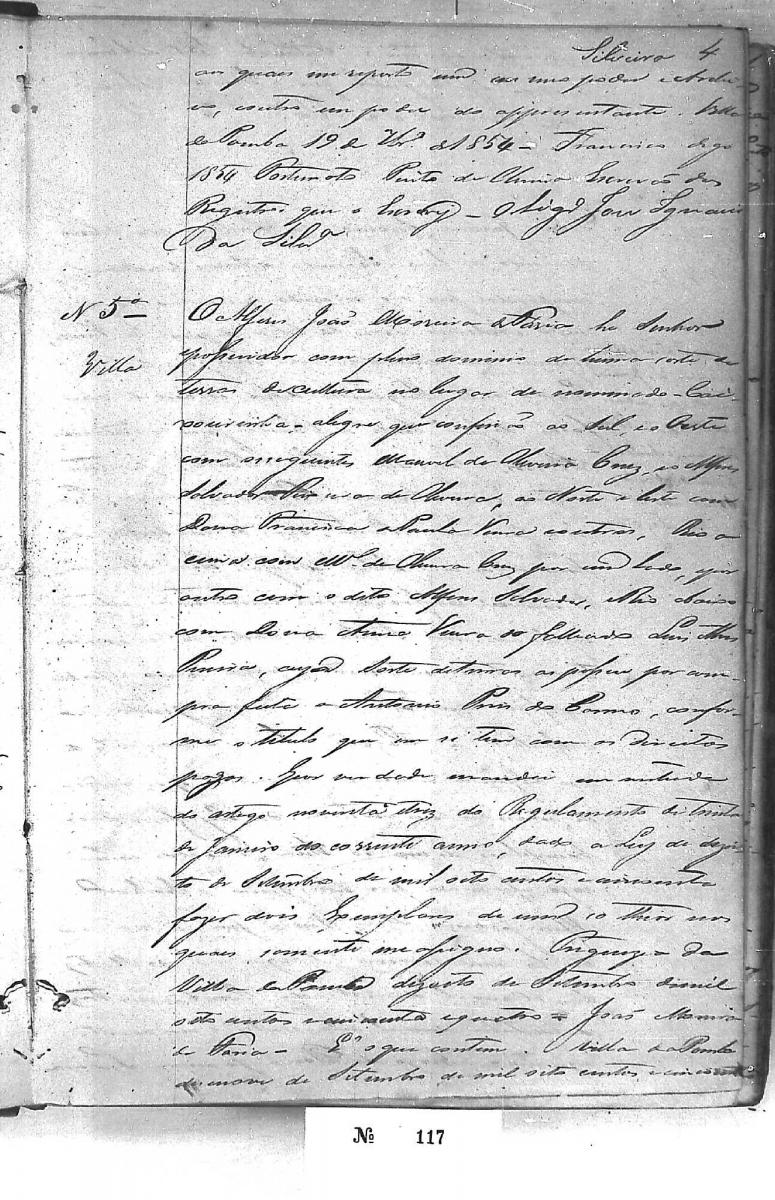 Silveira 4
aos quais me reporto um em meo poder e Archi-
vo, e outro em poder do appresentante. Villa
do Pomba 19 de 7br.º de 1854 - Francisco digo
1854 Fortunato Pinto de Oliveira Escrivão dos
Registros que o Escrevy - O Vigrº Jose Ignacio
Da Silvª
N 5º
Villa
O Alferes João Moreira de Faria he Senhor
e possuidor com pleno dominio de huma sorte de
terras de cultura no lugar de nominado - Cax-
oeirinha - alegre que confinão ao Sul, e Oeste
com os seguintes Manoel de Oliveira Cruz, e o Alferes
Salvador Pereira de Oliveira, ao Norte e Leste com
Dona Francisca de Paula Vieira e outros, Rio a
cima com Mel de Oliveira Cruz por um lado, e por
outro com o dito Alferes Salvador, Rio abaixo
com Dona Anna Vieira e o falleado Luis
Pereira, cuja Sorte de terras as possue por com-
pra feita a Antonio Pires do Carmo, confor-
me o titulo que em si tem com os direitos
pagos. E por verdade mandei em virtude
do artigo noventa e trez do Regulamento de trinta
de Janeiro do corrente anno, dado a Ley de dezoi-
to de Setembro de mil oito centos e cincoenta
fazer dois Exemplares de um e o theor nos
quaes somente me assigno. Freguezia da
Villa do Pomba dezoito de Setembro de mil
oito centos e cincoenta e quatro = João Moreira
de Faria - E' o que contem. Villa do Pomba
dezenove de Setembro de mil oito centos e cincoenta
Nº 117